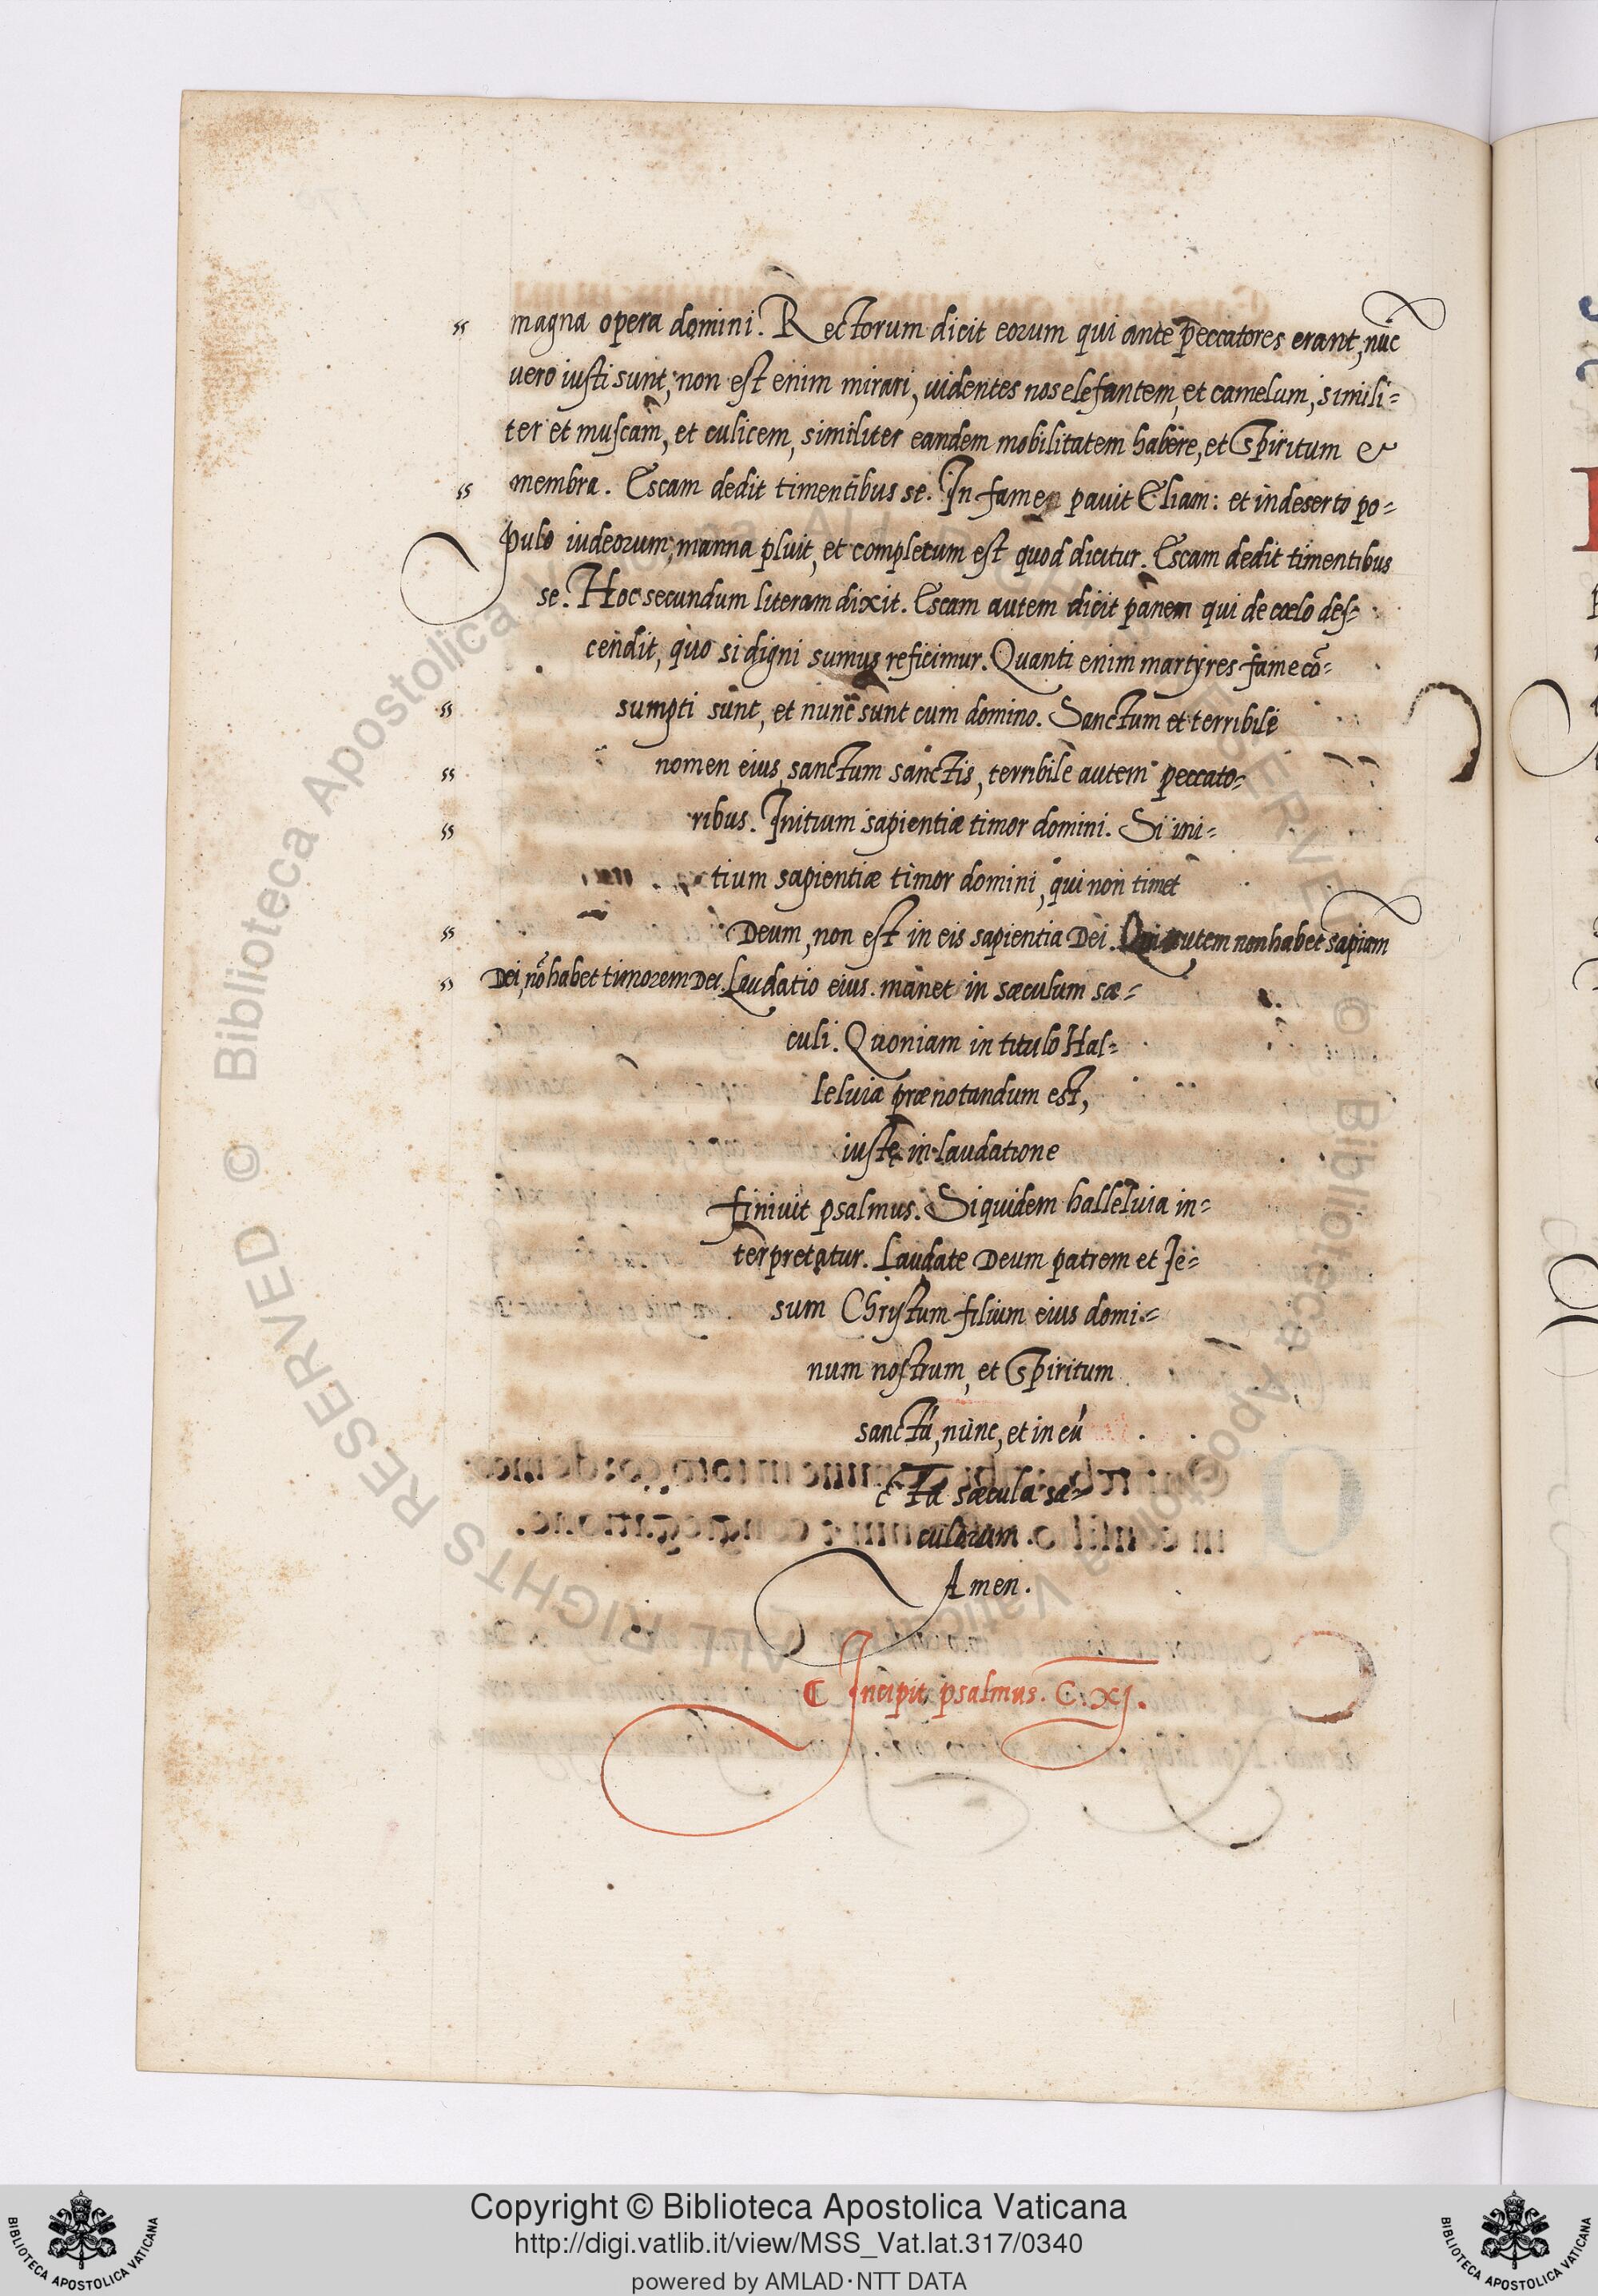 magna opera domini. Rectorum dicit eorum qui ante peccatores erant, nūc
uero iusti sunt, non est enim mirari, uidentes nos elefantem, et camelum, simili=
ter et muscam, et culicem, similiter eandem mobilitatem habere, et Spiritum &
membra. Escam dedit timentibus se. In famem pauit Eliam: et in deserto po=
pulo iudeorum, manna pluit, et completum est quod dicitur. Escam dedit timentibus
se. Hoc secundum literam dixit. Escam autem dicit panem qui de cœlo des=
cendit, quo si digni sumus reficimur. Quanti enim martyres fame cō=
sumpti sunt, et nunc sunt cum domino. Sanctum et terribile
nomen eius, sanctum sanctis, terribile autem peccato=
ribus. Initium sapientiæ timor domini. Si ini=
tium sapientiæ timor domini, qui non timet
Deum, non est in eis sapientia Dei. Qui autem non habet sapiam
Dei, nō habet timorem Dei. Laudatio eius manet in sæculum sæ=
culi. Quoniam in titulo Hal=
leluia prænotandum est,
iuste in laudatione
finiuit psalmus. Siquidem halleluia in=
terpretatur. Laudate Deum patrem et Je=
sum Christum filium eius domi=
num nostrum, et Spiritum
sanctū, nunc, et in cū
cta sæcula sæ=
culorum.
Amen.
¶ Incipit psalmus. C. XJ.
Copyright © Biblioteca Apostolica Vaticana
http://digi.vatlib.it/view/MSS_Vat.lat.317/0340
powered by AMLAD·NTT DATA
BIBLIOTECA APOSTOLICA VATICANA
BIBLIOTECA APOSTOLICA VATICANA